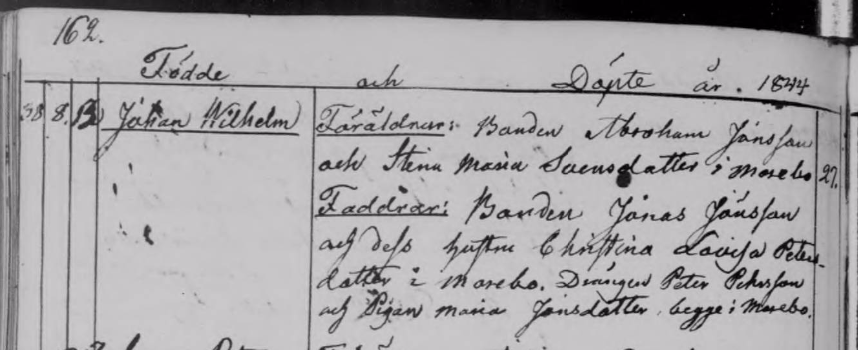 162.
Födde och Döpte år. 1844
38 8. B Johan Wilhelm Föräldrar: Bonden Abraham Jönsson
och Stina Maria Svensdatter i Morebo 27.
Faddrar: Bonden Jonas Jönsson
och dess hustru Christina Lovisa Peters-
datter i Morebo. Drängen Peter Petersson
och Pigan Maria Jonsdatter, begge i Morebo.